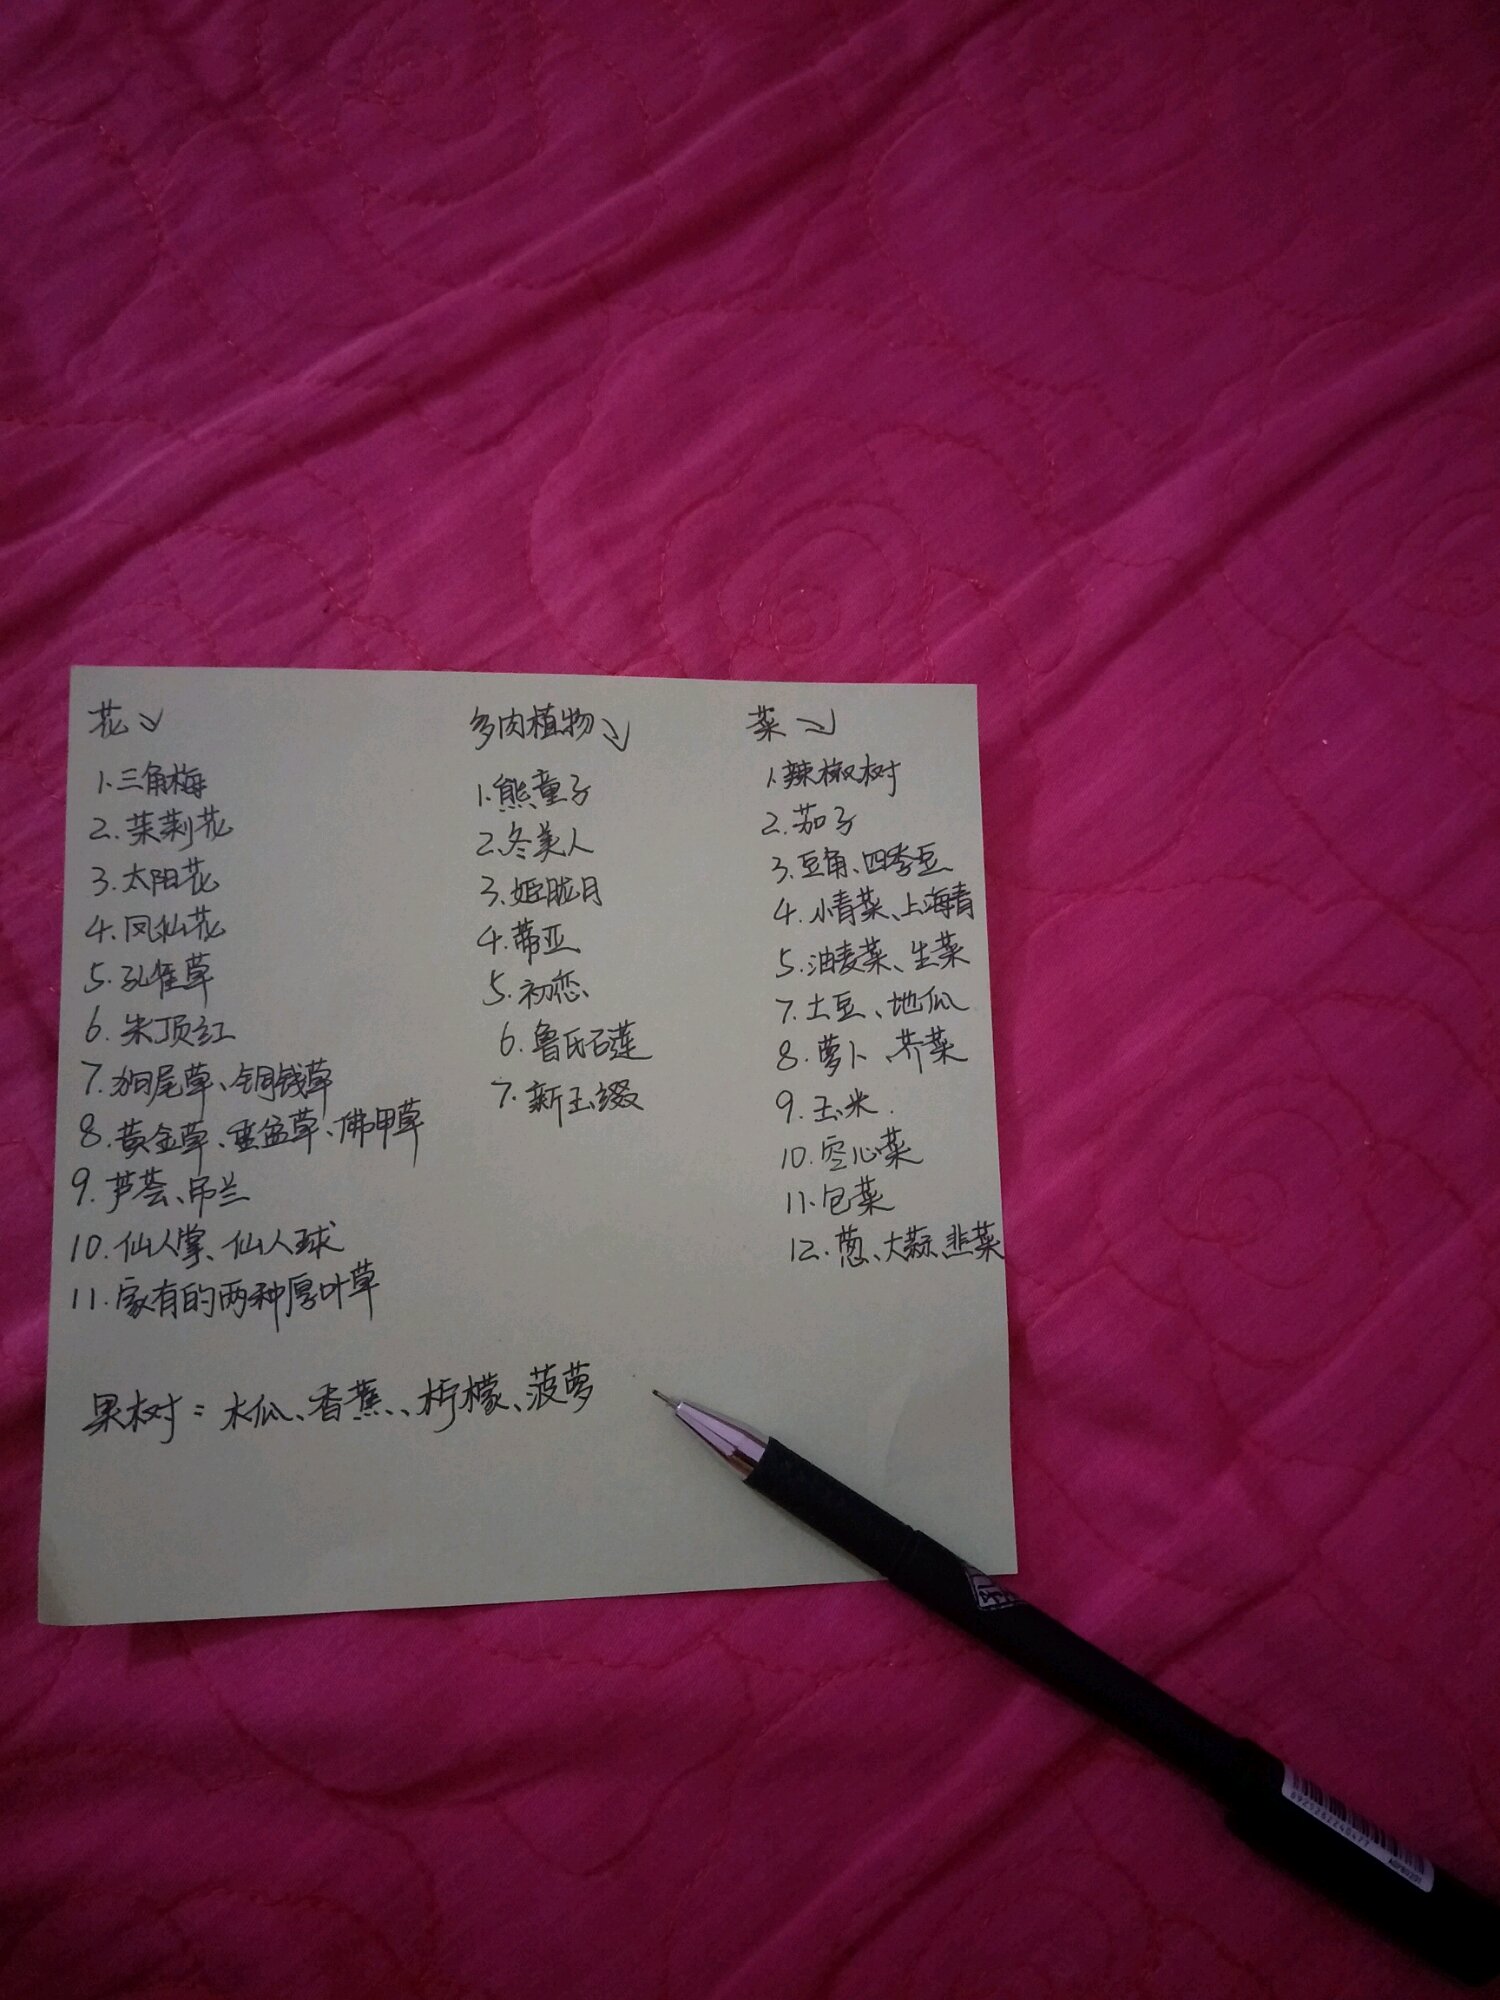 花
1.三角梅
2.茉莉花
3.太阳花
4.凤仙花
5.孔雀草
6.朱顶红
7.狗尾草、铜钱草
8.黄金草、垂盆草、佛甲草
9.芦荟、吊兰
10.仙人掌、仙人球
11.家有的两种厚叶草
多肉植物
1.熊童子
2.冬美人
3.姬胧月
4.蒂亚
5.初恋
6.鲁氏石莲
7.新玉缀
菜
1.辣椒树
2.茄子
3.豆角、四季豆
4.小青菜、上海青
5.油麦菜、生菜
7.土豆、地瓜
8.萝卜、芥菜
9.玉米.
10.空心菜
11.包菜
12.葱、大蒜、韭菜
果树：木瓜、香蕉、柠檬、菠萝
6929282240477